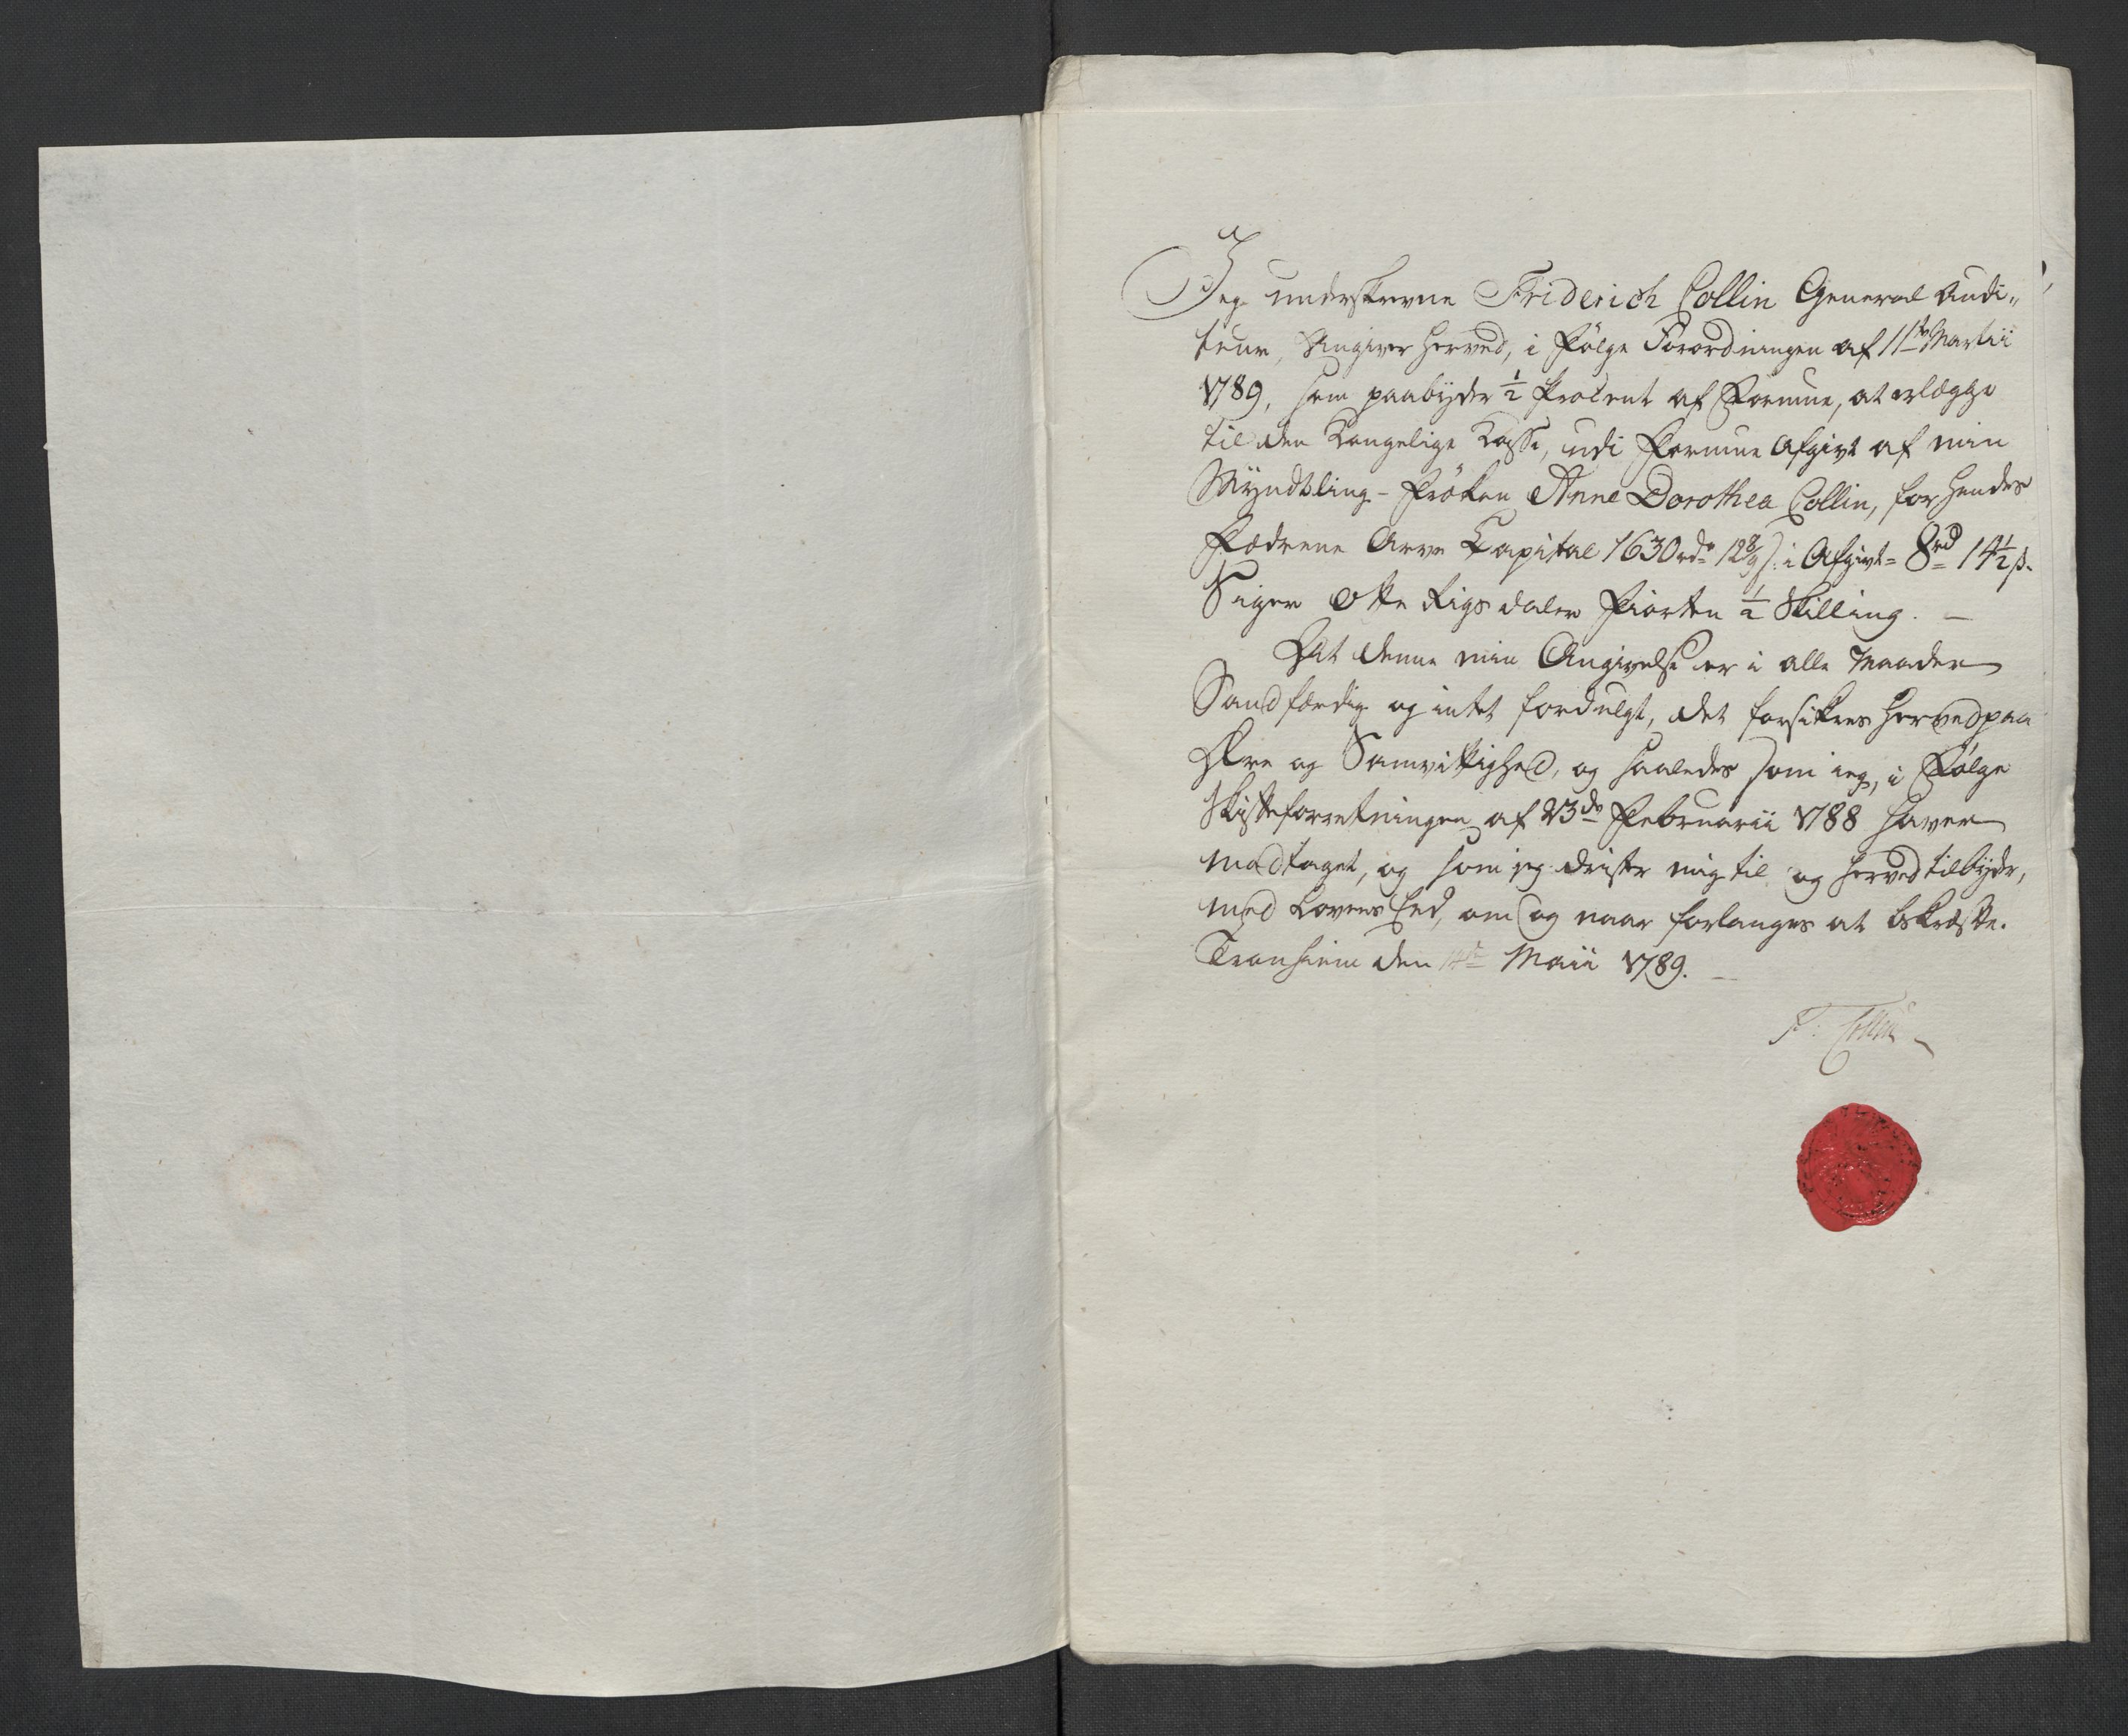 Jeg underskrevne Friderich Collin General Audi„
teur, Angiver herved, i Følge Forordningen af 11te Martii
1789, som paabyder ½ Procent af Formue, at erlægge
til den Kongelige Casse, udi Formue Afgivt af min
Myndtling - Frøken Anne Dorothea Collin, for hendes
Fædrene Arve Capital 1630 rdr 12 8/9 ß. i Afgivt = 8 rd 14½ ß.
Siger Otte Rigsdaler Fiorten ½ Skilling. —
At denne min Angivelse er i alle Maader
Sandfærdig og intet fordulgt, det forsikres herved paa
Ære og Samvittighed, og saaledes som ieg, i Følge
Skifteforretningen af 23de Februarii 1788 haver
modtaget, og som jeg drister mig til og herved tilbyder,
med Lovens Eed, om og naar forlanges at bekræfte.
Tronhiem den 14de Maii 1789. —
F: Collin